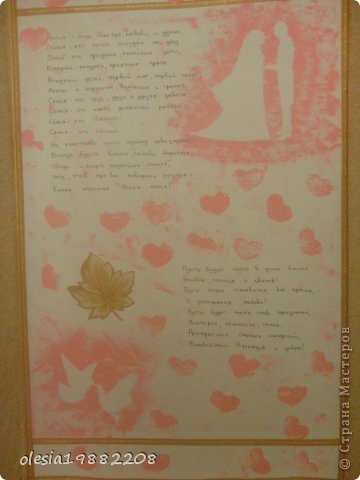 Семья – это счастье, любовь и удача,
Семья – это летом поездки на дачу.
Семья – это праздник, семейные даты,
Подарки, покупки, приятные траты.
Рождение детей, первый шаг, первый лепет,
Мечты о хорошем, волнение и трепет.
Семья – это труд, друг о друге забота,
Семья – это много домашней работы.
Семья – это важно!
Семья – это сложно!
Но счастливо жить одному невозможно!
Всегда будьте вместе, любовь берегите,
Обиды и ссоры подальше гоните,
Хочу, чтоб про вас говорили друзья:
Какая хорошая Ваша семья!
Пусть будет много в доме вашем
Улыбок, солнца и цветов!
Пусть жизнь становится всё краше,
И умножается любовь!
Пусть будет много слов признанья,
Восторга, нежности, тепла,
Прекрасных, смелых начинаний,
Волшебных взглядов и добра!
olesia19882208
© Страна Мастеров